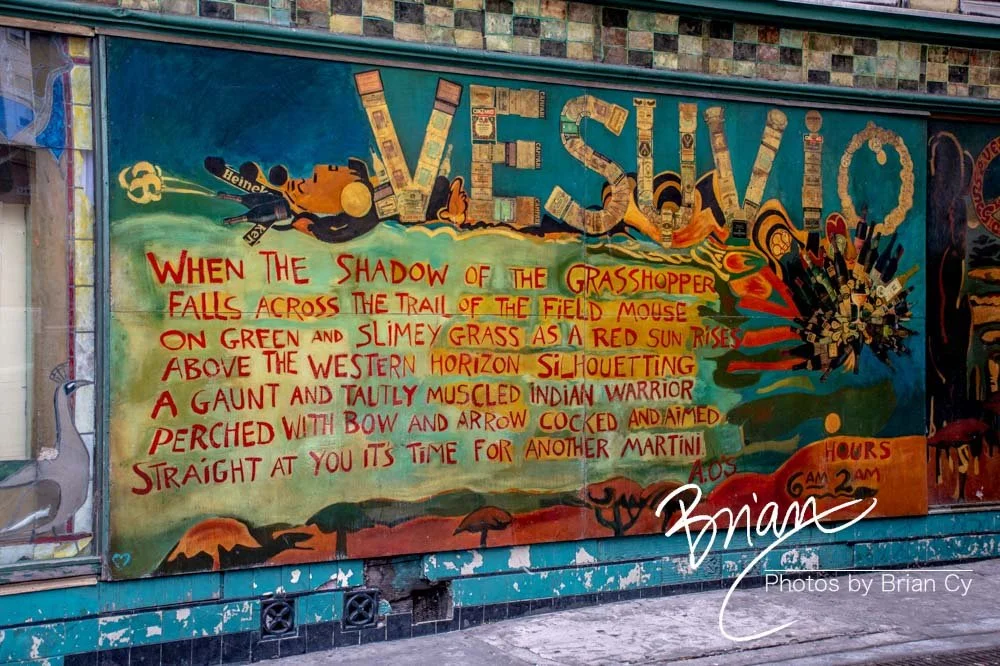 VESUVIO
Heinek
Ker
WHEN THE SHADOW OF THE GRASSHOPPER
FALLS ACROSS THE TRAIL OF THE FIELD MOUSE
ON GREEN AND SLIMEY GRASS AS A RED SUN RISES
ABOVE THE WESTERN HORIZON SILHOUETTING
A GAUNT AND TAUTLY MUSCLED INDIAN WARRIOR
PERCHED WITH BOW AND ARROW COCKED AND AIMED
STRAIGHT AT YOU IT'S TIME FOR ANOTHER MARTINI.
A.O'S
HOURS
6AM 2AM
Brian
Photos by Brian Cy